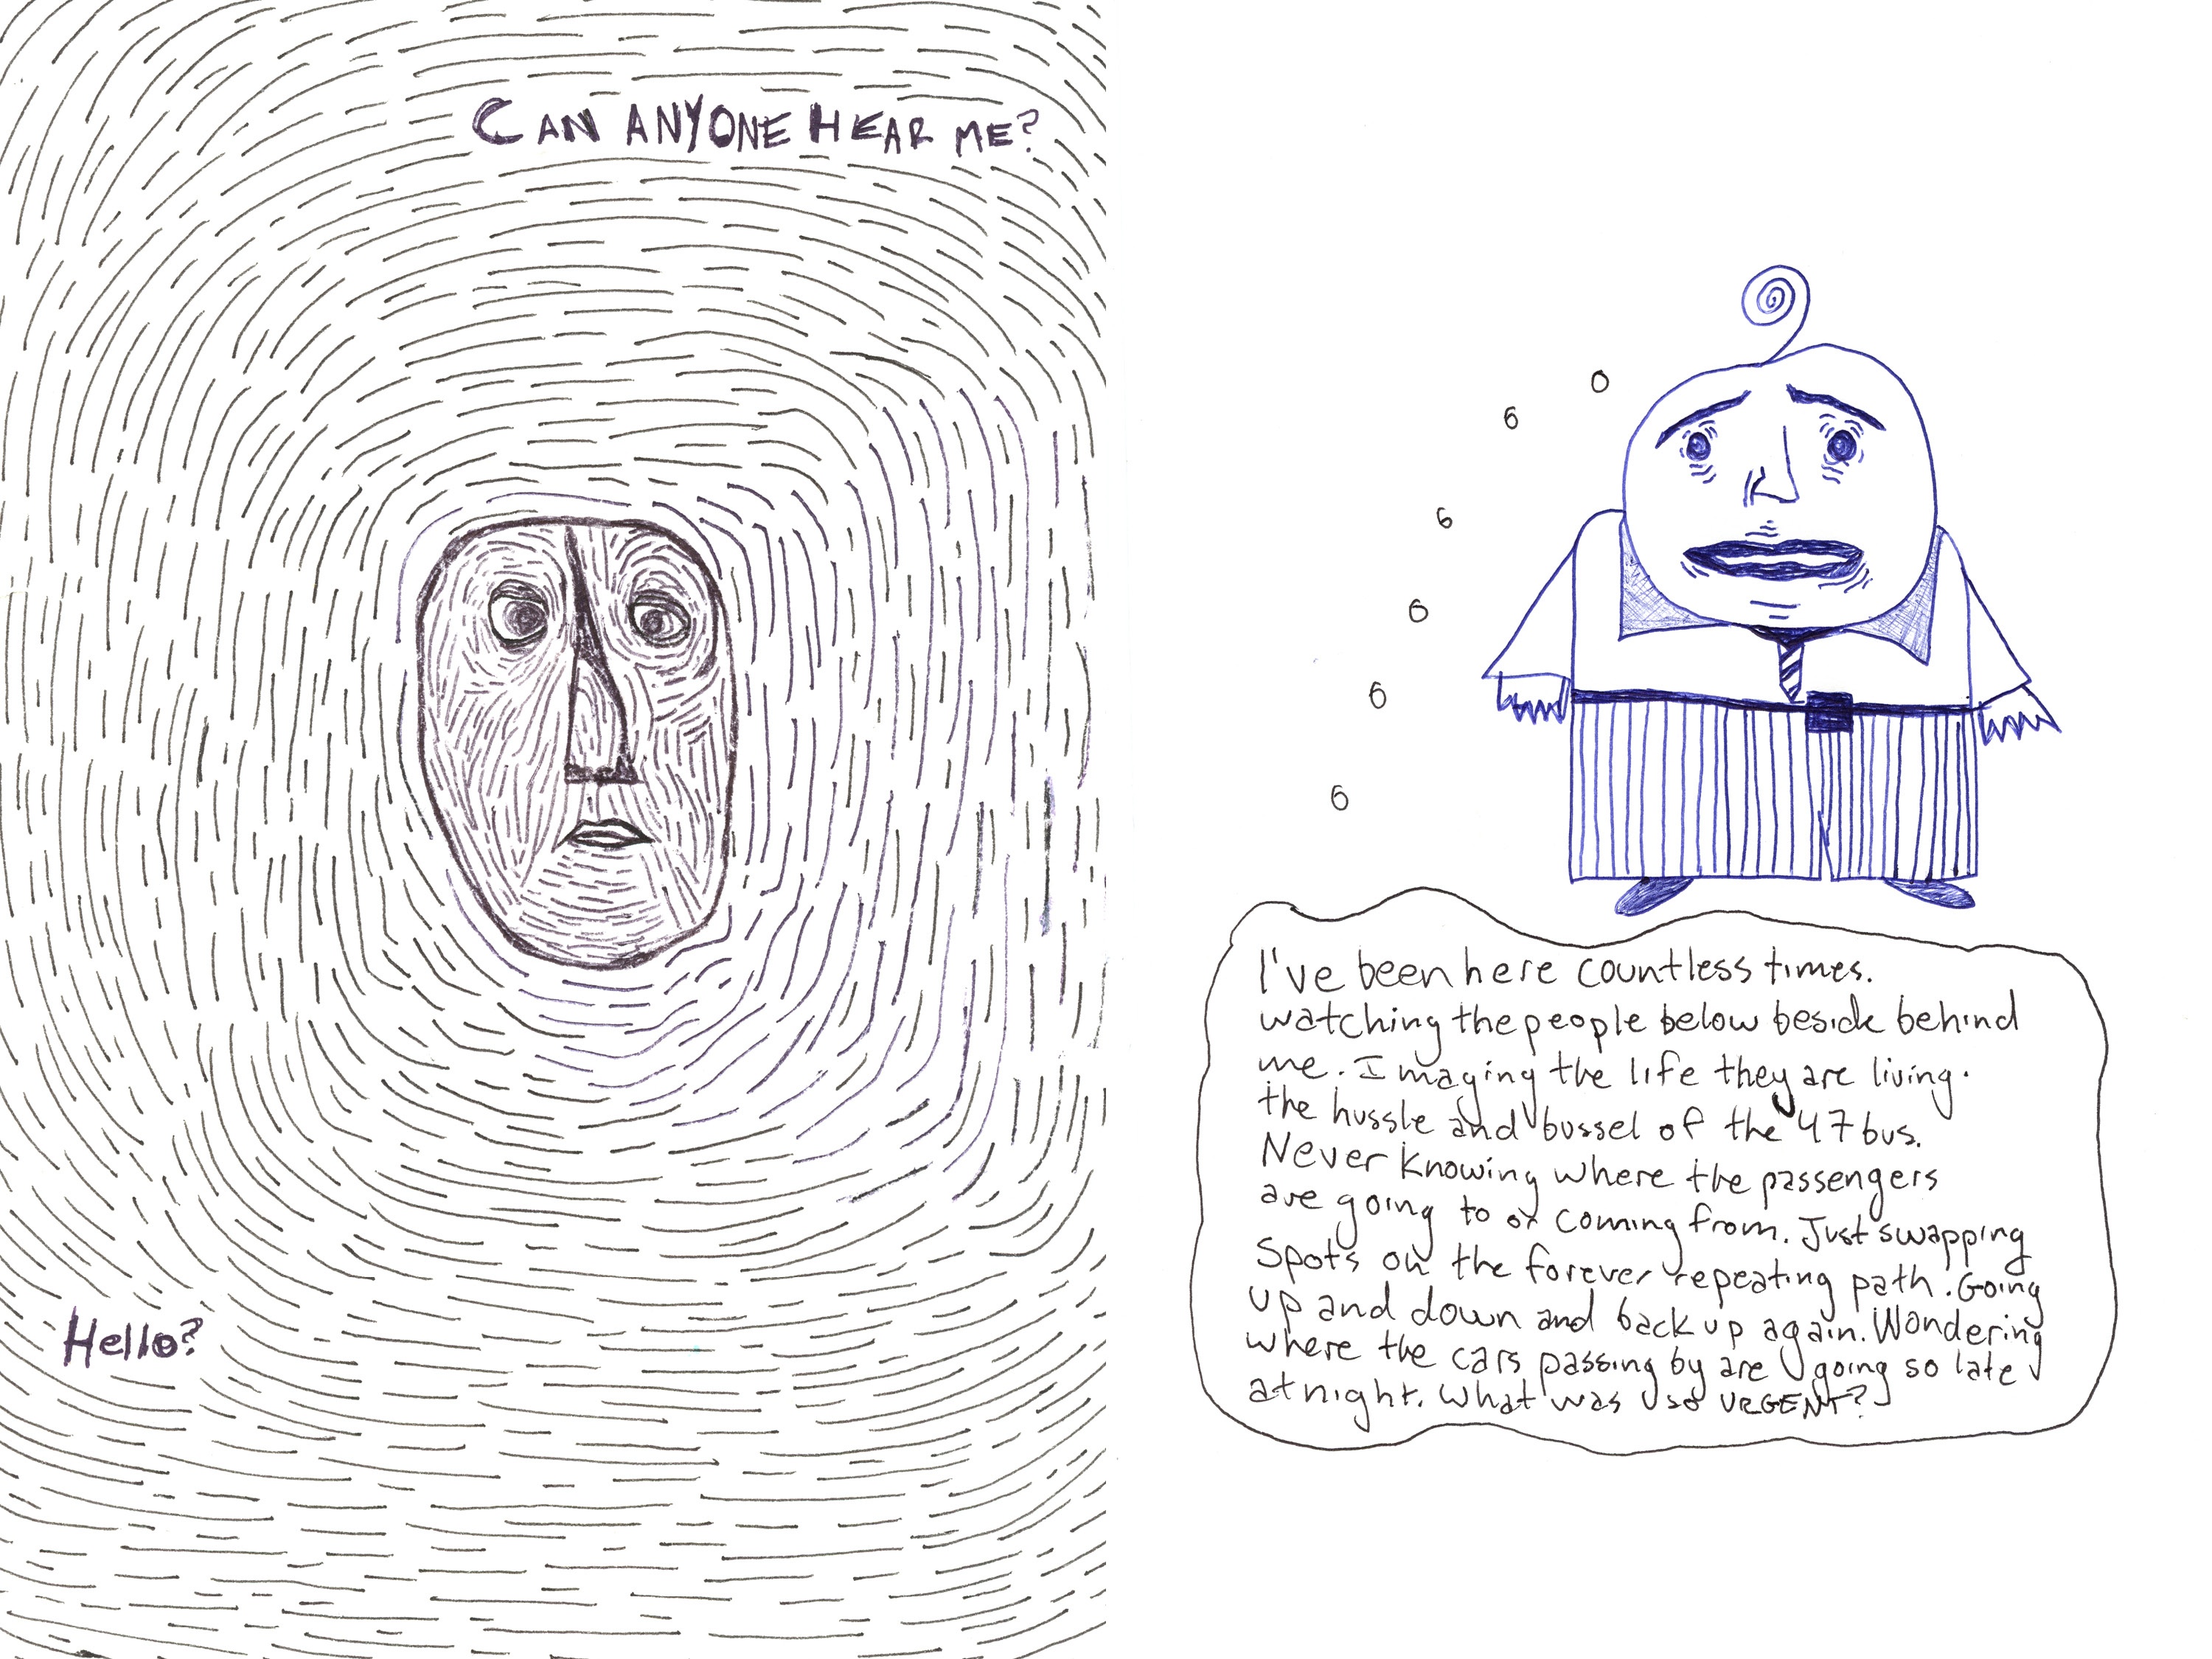 CAN ANYONE HEAR ME?
Hello?
I've been here countless times.
watching the people below beside behind
me. Imaging the life they are living.
the hussle and bussel of the 47 bus.
Never knowing where the passengers
are going to or coming from. Just swapping
spots on the forever repeating path. Going
up and down and back up again. Wondering
where the cars passing by are going so late
at night. What was so URGENT?